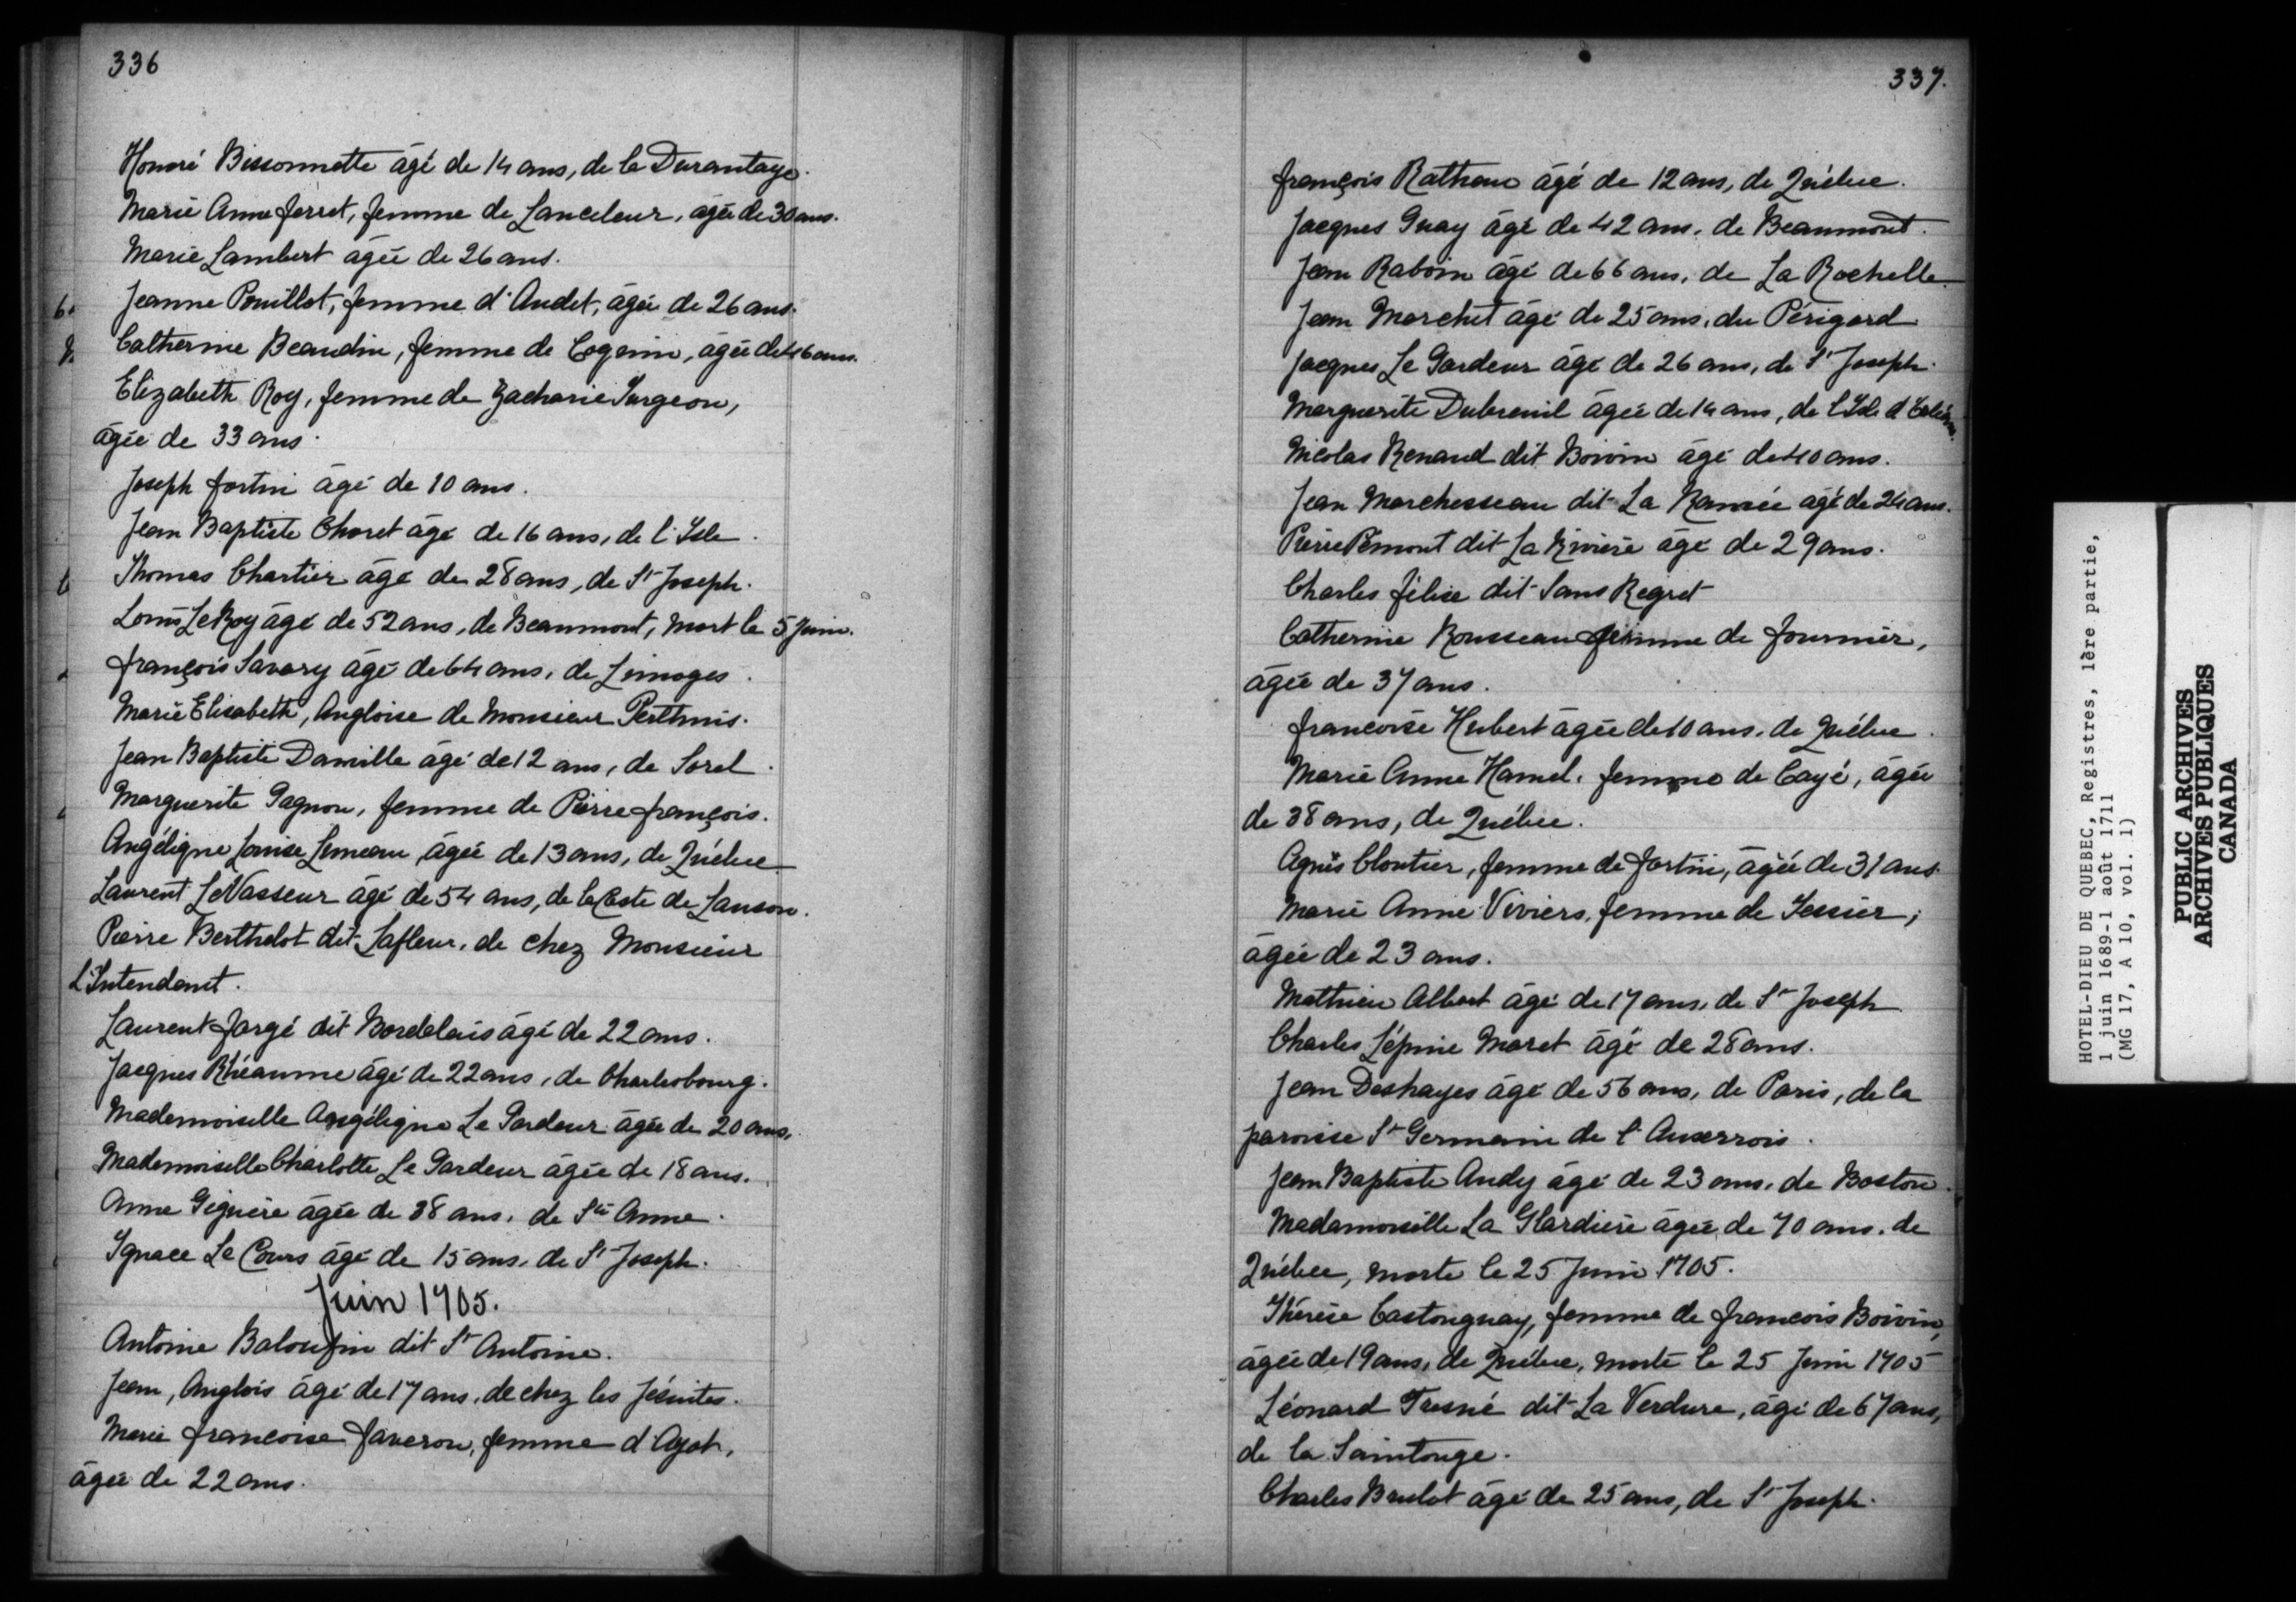 336
Honoré Bissonnette âgé de 14 ans, de la Durantaye.
Marie Anne ferret, femme de Lanceleur, agée de 30 ans.
Marie Lambert agée de 26 ans.
Jeanne Pouillot, femme d'Audet, âgée de 26 ans.
Catherine Beaudin, femme de Cognin, agée de 46 ans.
Elizabeth Roy, femme de Zacharie Turgeon,
âgée de 33 ans.
Joseph fortin âgé de 10 ans.
Jean Baptiste Choret âgé de 16 ans, de l'Isle.
Thomas Chartier âgé de 28 ans, de St Joseph.
Louis LeRoy âgé de 52 ans, de Beaumont, mort le 5 Juin.
françois Savary âgé de 64 ans, de Limoges.
Marie Elisabeth, Angloise de Monsieur Perthuis.
Jean Baptiste Damille âgé de 12 ans, de Sorel.
Marguerite Gagnon, femme de Pierre françois.
Angélique Louise Lemeau, âgée de 13 ans, de Québec.
Laurent LeVasseur âgé de 54 ans, de la Coste de Lauson.
Pierre Berthelot dit Lafleur, de chez Monsieur
L'Intendant.
Laurent fargé dit Bordelais âgé de 22 ans.
Jacques Rhéaume âgé de 22 ans, de Charlesbourg.
Mademoiselle Angélique Le Gardeur âgée de 20 ans.
Mademoiselle Charlotte Le Gardeur âgée de 18 ans.
Anne Giguère âgée de 38 ans, de Ste Anne.
Ignace Le Cours âgé de 15 ans, de St Joseph.
Juin 1705.
Antoine dit St Antoine.
Jean, Anglois âgé de 17 ans, de chez les Jésuites.
Marie francoise Faveron, femme d'Ayot,
âgée de 22 ans.
337.
françois Ratheau âgé de 12 ans, de Québec.
Jacques Guay âgé de 42 ans, de Beaumont.
Jean Raboin âgé de 66 ans, de La Rochelle.
Jean Marchet âgé de 25 ans, du Périgord
Jacques Le Gardeur âgé de 26 ans, de St Joseph.
Marguerite Dubreuil âgée de 14 ans, de l'Isle d'Orléans.
Nicolas Renaud dit Boivin âgé de 40 ans.
Jean Marchesseau dit La Ramée âgé de 24 ans.
Pierre Pémont dit La Rivière âgé de 29 ans.
Charles félise dit Sans Regret
Catherine Rousseau femme de fournier,
âgée de 37 ans.
francoise Hubert âgée de 10 ans, de Québec.
Marie Anne Hamel, femme de Cayé, âgée
de 38 ans, de Québec.
Agnès Cloutier, femme de fortin, âgée de 31 ans.
Marie Anne Viviers, femme de Tessier,
âgée de 23 ans.
Mathieu Albert âgé de 17 ans, de St Joseph
Charles Lépine Maret âgé de 28 ans.
Jean Deshayes âgé de 56 ans, de Paris, de la
paroisse St Germain de l'Auxerrois.
Jean Baptiste Andy âgé de 23 ans, de Boston.
Mademoiselle La Glardière âgée de 70 ans, de
Québec, morte le 25 Juin 1705.
Thérèse Castonguay, femme de francois Boivin,
agée de 19 ans, de Québec, morte le 25 Juin 1705
Léonard Tresné dit La Verdure, âgé de 67 ans,
de la Saintonge.
Charles Brulot âgé de 25 ans, de St Joseph.
HOTEL-DIEU DE QUEBEC, Registres, 1ère partie,
1 juin 1689-1 août 1711
(MG 17, A 10, vol. 1)
PUBLIC ARCHIVES
ARCHIVES PUBLIQUES
CANADA